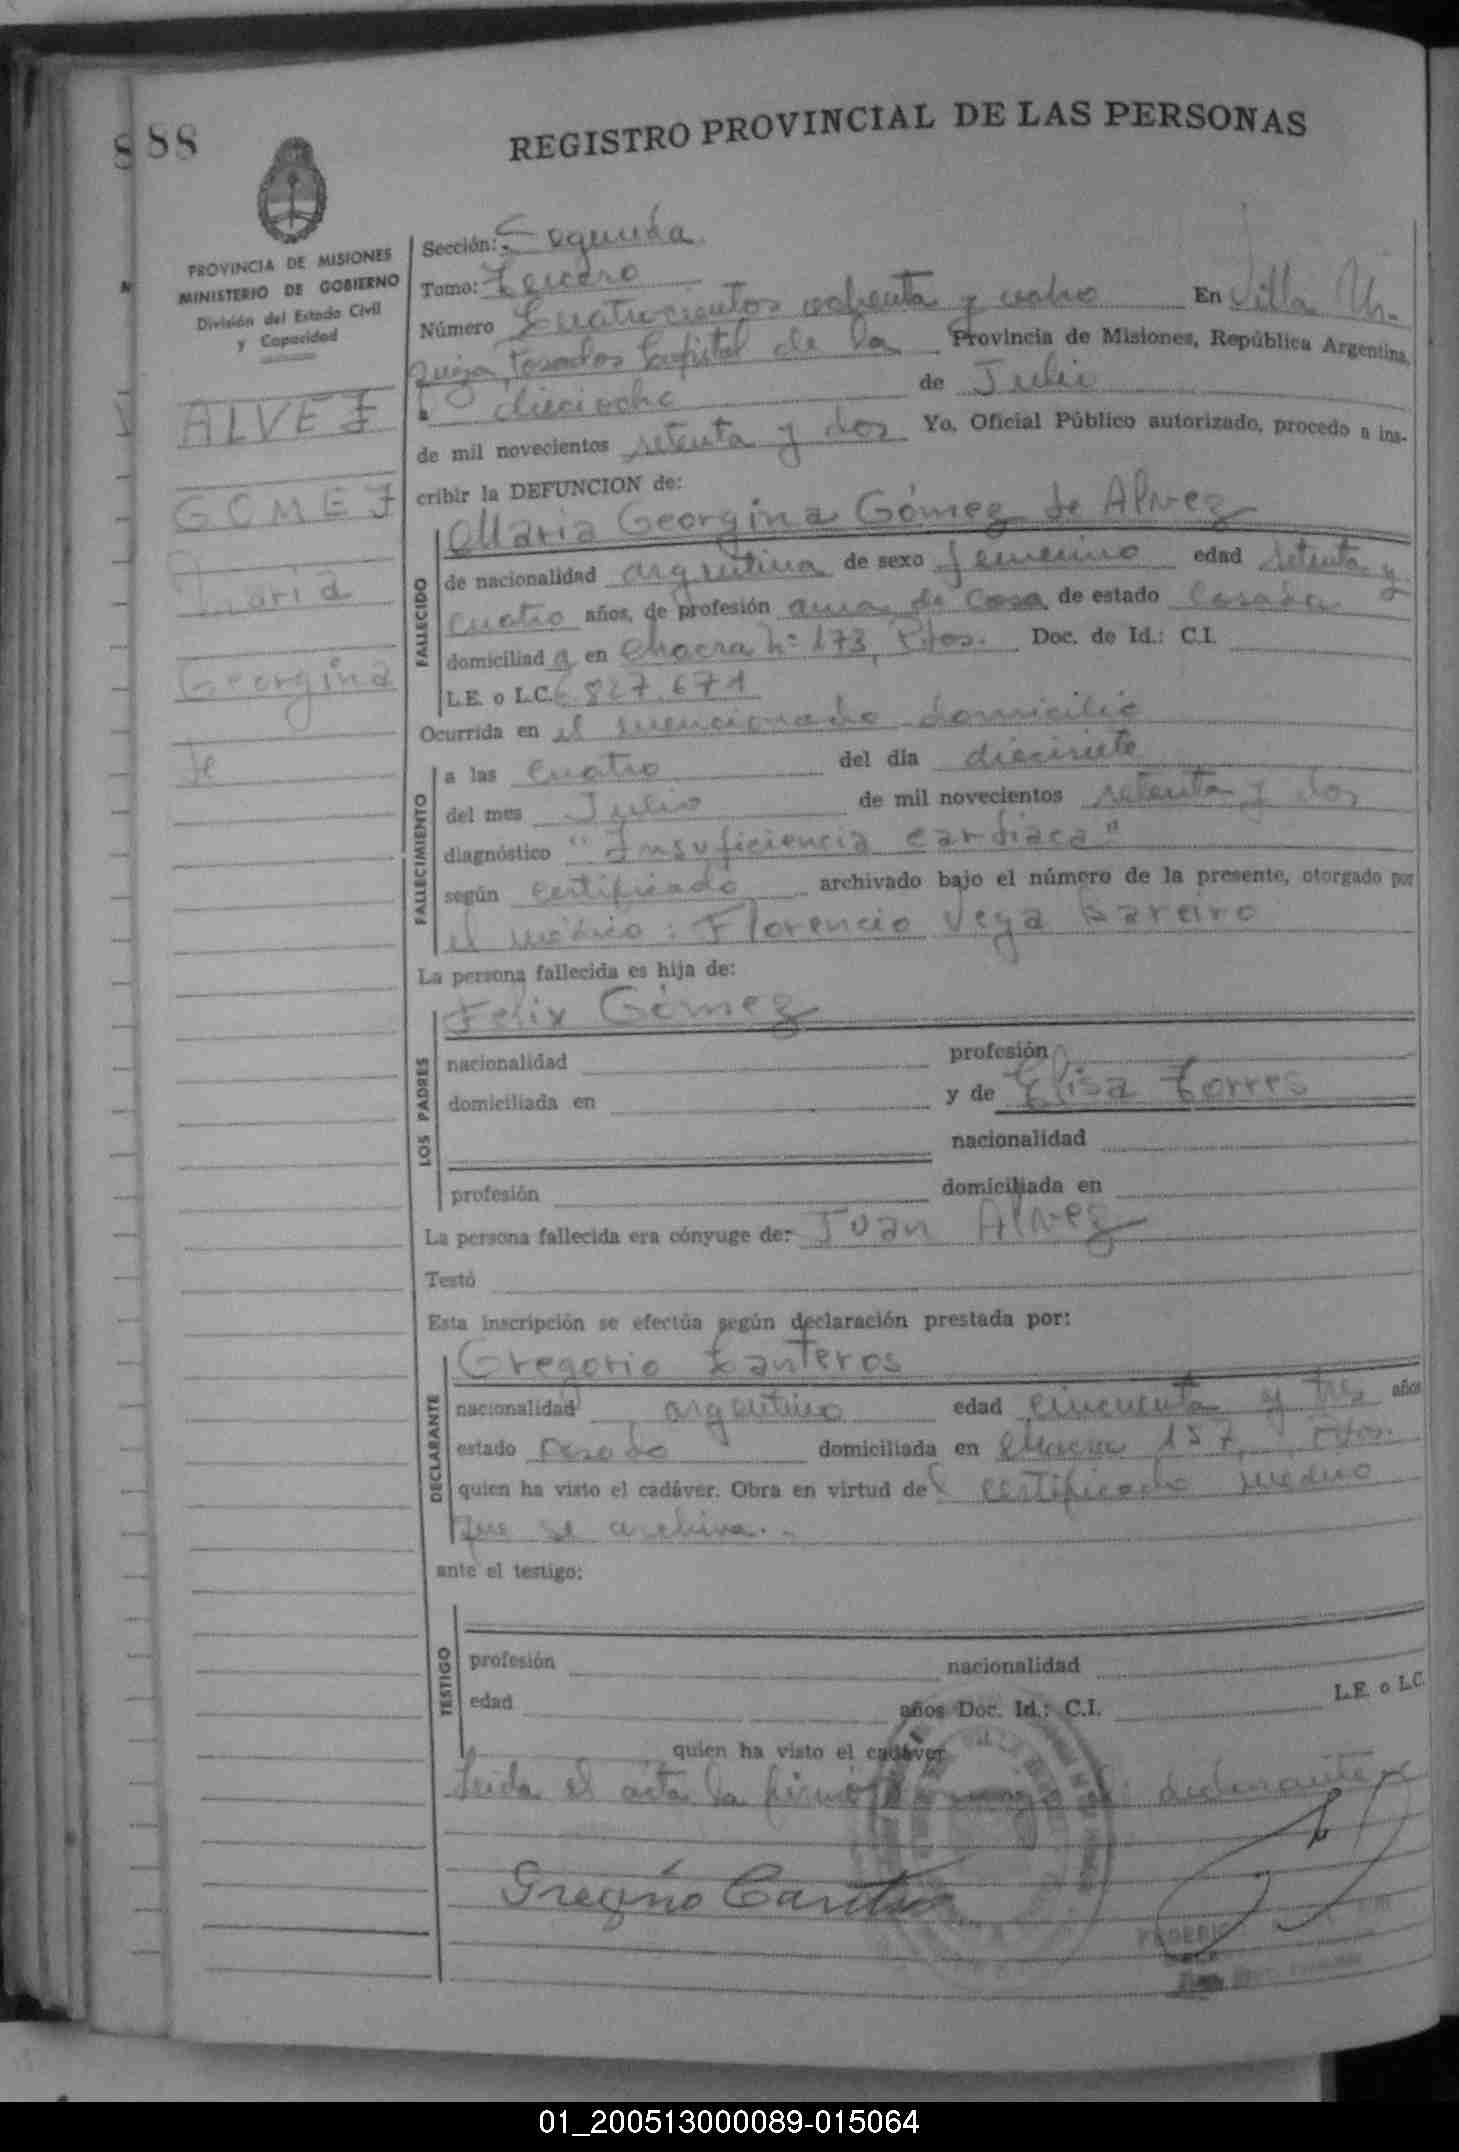 888
REGISTRO PROVINCIAL DE LAS PERSONAS
PROVINCIA DE MISIONES
MINISTERIO DE GOBIERNO
División del Estado Civil
y Capacidad
ALVEZ
GOMEZ
Maria
Georgina
de
Sección: Segunda
Tomo: Tercero
Número Cuatrocientos ochenta y ocho En Villa Ur-
quiza, Posadas Capital de la Provincia de Misiones, República Argentina,
a dieciocho de Julio
de mil novecientos setenta y dos Yo, Oficial Público autorizado, procedo a ins-
cribir la DEFUNCION de:
FALLECIDO
Maria Georgina Gómez de Alvez
de nacionalidad argentina de sexo femenino edad setenta y
cuatro años, de profesión ama de casa de estado casada
domiciliada en Chacra Nº 173, Pdas. Doc. de Id.: C.I.
L.E. o L.C. 6.827.671
Ocurrida en el mencionado domicilio
FALLECIMIENTO
a las cuatro del día diecisiete
del mes Julio de mil novecientos setenta y dos
diagnóstico "Insuficiencia cardiaca"
según certificado archivado bajo el número de la presente, otorgado por
el médico: Florencio Vega Bareiro
La persona fallecida es hija de:
LOS PADRES
Felix Gómez
nacionalidad profesión
domiciliada en y de Elisa Torres
nacionalidad
profesión domiciliada en
La persona fallecida era cónyuge de: Juan Alvez
Testó
Esta inscripción se efectúa según declaración prestada por:
DECLARANTE
Gregorio Canteros
nacionalidad argentino edad cincuenta y tres años
estado casado domiciliada en Chacra 157, Pdas.
quien ha visto el cadáver. Obra en virtud del certificado médico
que se archiva.
ante el testigo:
TESTIGO
profesión nacionalidad
edad años Doc. Id.: C.I. L.E. o L.C.
quien ha visto el cadáver
Leida el acta la firmó conmigo el declarante
Gregorio Canteros
01_200513000089-015064